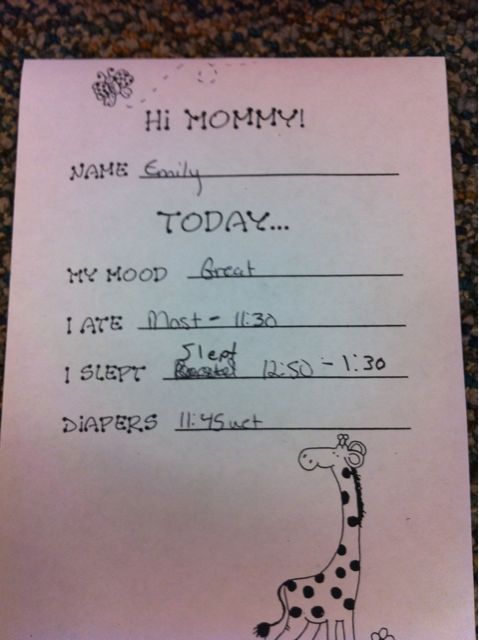 Hi MOMMY!
NAME Emily
TODAY...
MY MOOD Great
I ATE Most - 11:30
I SLEPT Slept 12:50 - 1:30
DiAPERS 11:45 wet